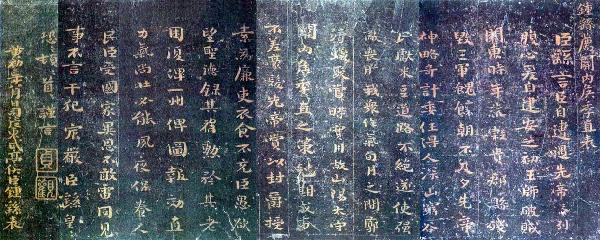 鍾繇薦關內侯季直表
臣繇言臣自遭遇先帝忝列
腹心爰自建安之初王師破賊
關東時年荒穀貴郡縣殘
毀三軍餽饟朝不及夕先帝
神略奇計委任得人深山窮谷
民獻米豆道路不絕遂使強
敵喪膽我眾作氣旬月之間廓
清蟻聚當時實用故山陽太守
關內侯季直之策剋期成事
不差豪髮先帝賞以封爵授
素為廉吏衣食不充臣愚欲
望聖德錄其舊勳矜其老
困復俾一州俾圖報效直
力氣尚壯必能夙夜保養人
民臣受國家異恩不敢雷同見
事不言干犯宸嚴臣繇皇
恐頓首謹言
貞觀
黃初二年八月日司徒東武亭侯臣鍾繇表